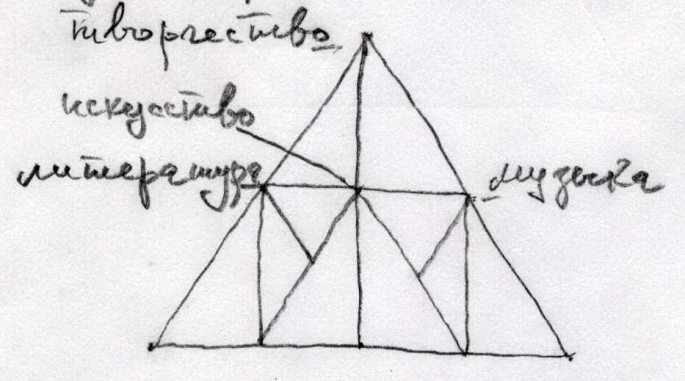 творчество
искусство
литература
музыка